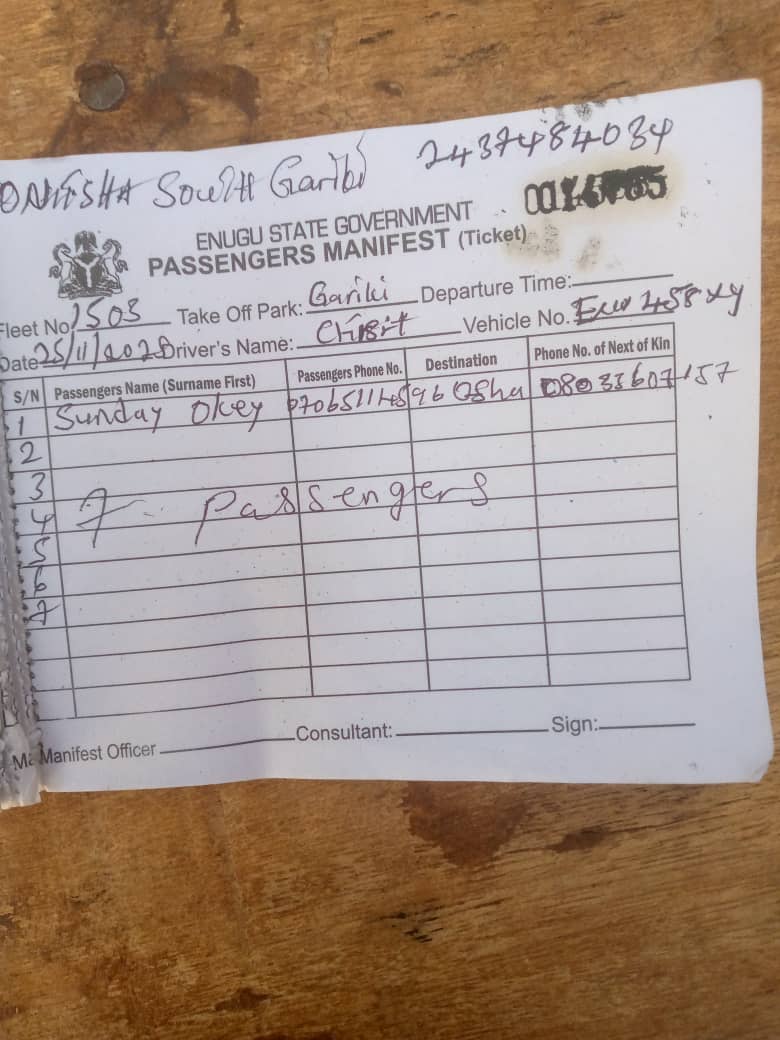 ONITSHA South Gariki 2437484034
ENUGU STATE GOVERNMENT
PASSENGERS MANIFEST (Ticket)
Fleet No 1503 Take Off Park: Gariki Departure Time:
Date 25/11/2025 Driver's Name: Vehicle No. 458 xy
S/N Passengers Name (Surname First) Passengers Phone No. Destination Phone No. of Next of Kin
1 Sunday Okey 07065114596 Osha 08033607157
2
3
4 7 Passengers
5
6
7
Manifest Officer Consultant: Sign: